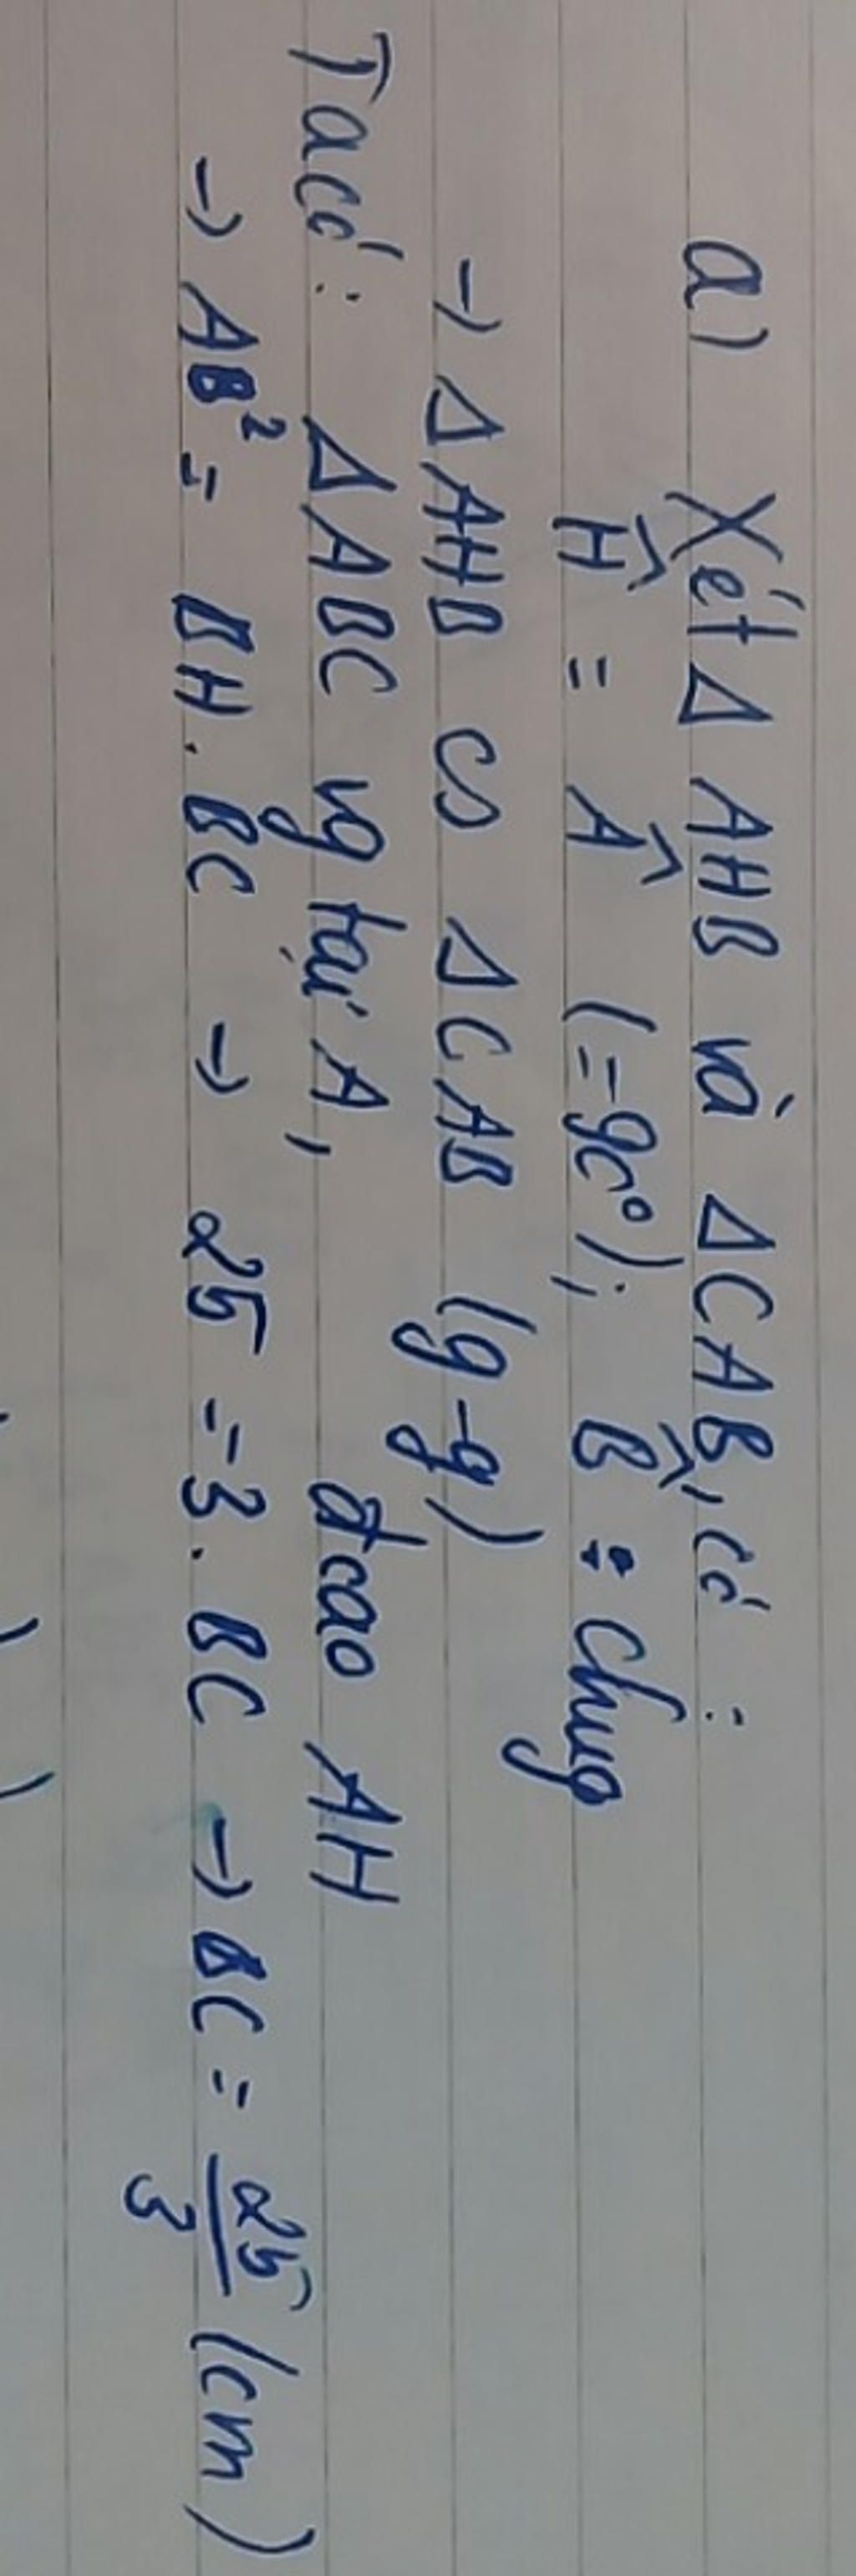 a) Xét Δ AHB và Δ CAB, có :
Ĥ = Â (=90°); B̂ : chug
→ Δ AHB ∽ Δ CAB (g-g)
Ta có: Δ ABC vg tại A, đcao AH
→ AB² = BH . BC → 25 = 3 . BC → BC = 25/3 (cm)